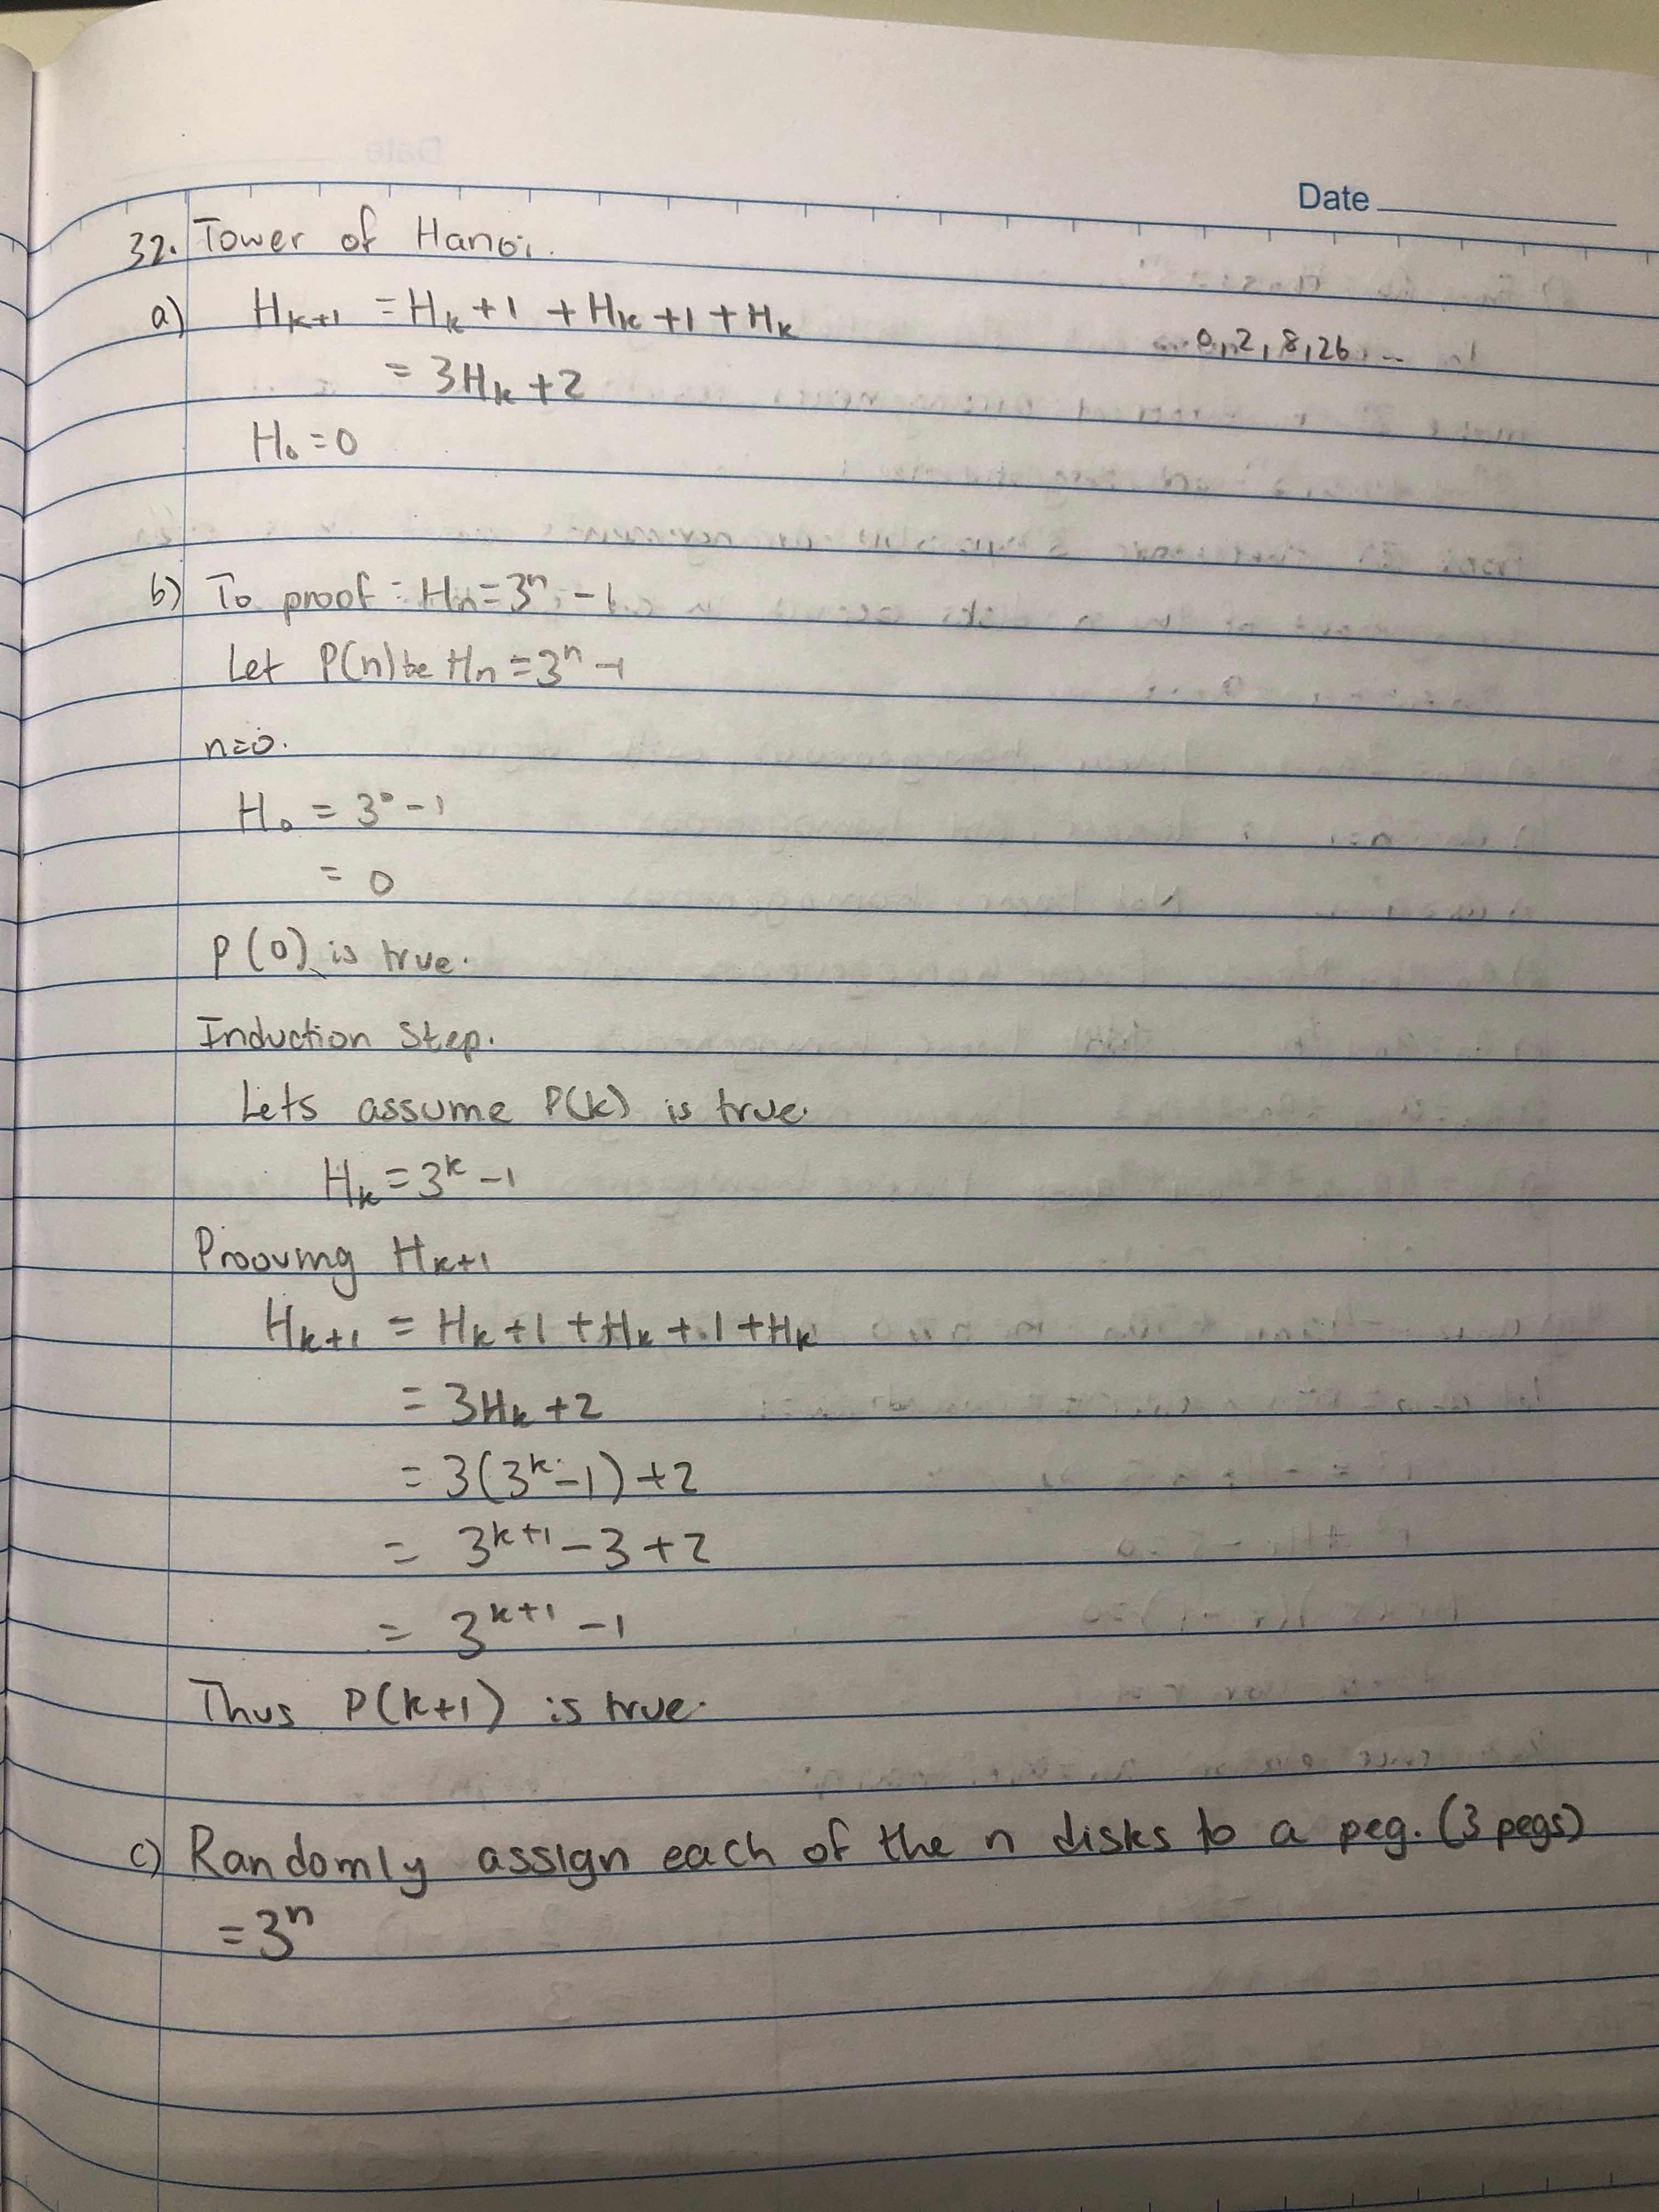 Date
32. Tower of Hanoi.
a) Hₖ₊₁ = Hₖ + 1 + Hₖ + 1 + Hₖ
0, 2, 8, 26 ...
= 3Hₖ + 2
H₀ = 0
b) To proof : Hₙ = 3ⁿ - 1
Let P(n) be Hₙ = 3ⁿ - 1
n=0.
H₀ = 3⁰ - 1
= 0
P(0) is true.
Induction Step.
Lets assume P(k) is true.
Hₖ = 3ᵏ - 1
Prooving Hₖ₊₁
Hₖ₊₁ = Hₖ + 1 + Hₖ + 1 + Hₖ
= 3Hₖ + 2
= 3(3ᵏ - 1) + 2
= 3ᵏ⁺¹ - 3 + 2
= 3ᵏ⁺¹ - 1
Thus P(k+1) is true.
c) Randomly assign each of the n disks to a peg. (3 pegs)
= 3ⁿ